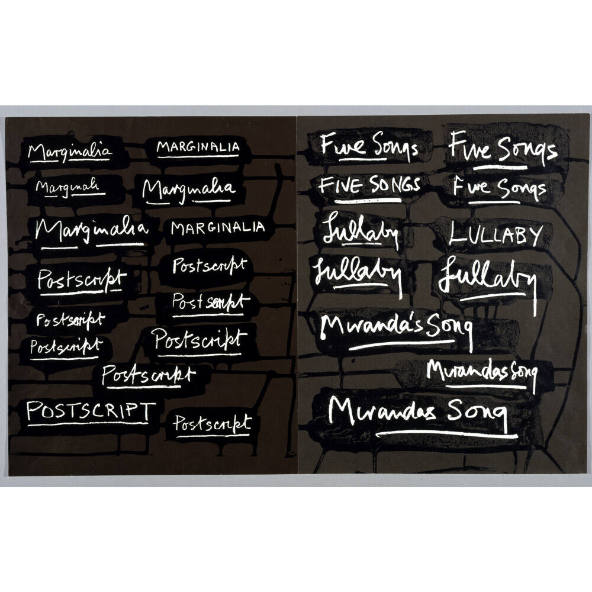 Marginalia
MARGINALIA
Marginali
Marginalia
Marginalia
MARGINALIA
Postscript
Postscript
Postscript
Postscript
Postscript
Postscript
Postscript
POSTSCRIPT
Postscript
Five Songs
Five Songs
FIVE SONGS
Five Songs
Lullaby
LULLABY
Lullaby
Lullaby
Miranda's Song
Mirandas Song
Mirandas Song